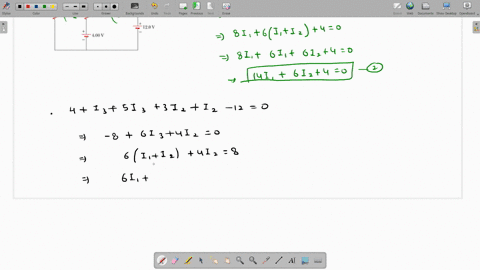 12.0 V
4.00 V
⇒ 8I₁ + 6(I₁+I₂) + 4 = 0
⇒ 8I₁ + 6I₁ + 6I₂ + 4 = 0
⇒ 14I₁ + 6I₂ + 4 = 0 — ②
• 4 + I₃ + 5I₃ + 3I₂ + I₂ - 12 = 0
⇒ -8 + 6I₃ + 4I₂ = 0
⇒ 6(I₁+I₂) + 4I₂ = 8
⇒ 6I₁ +